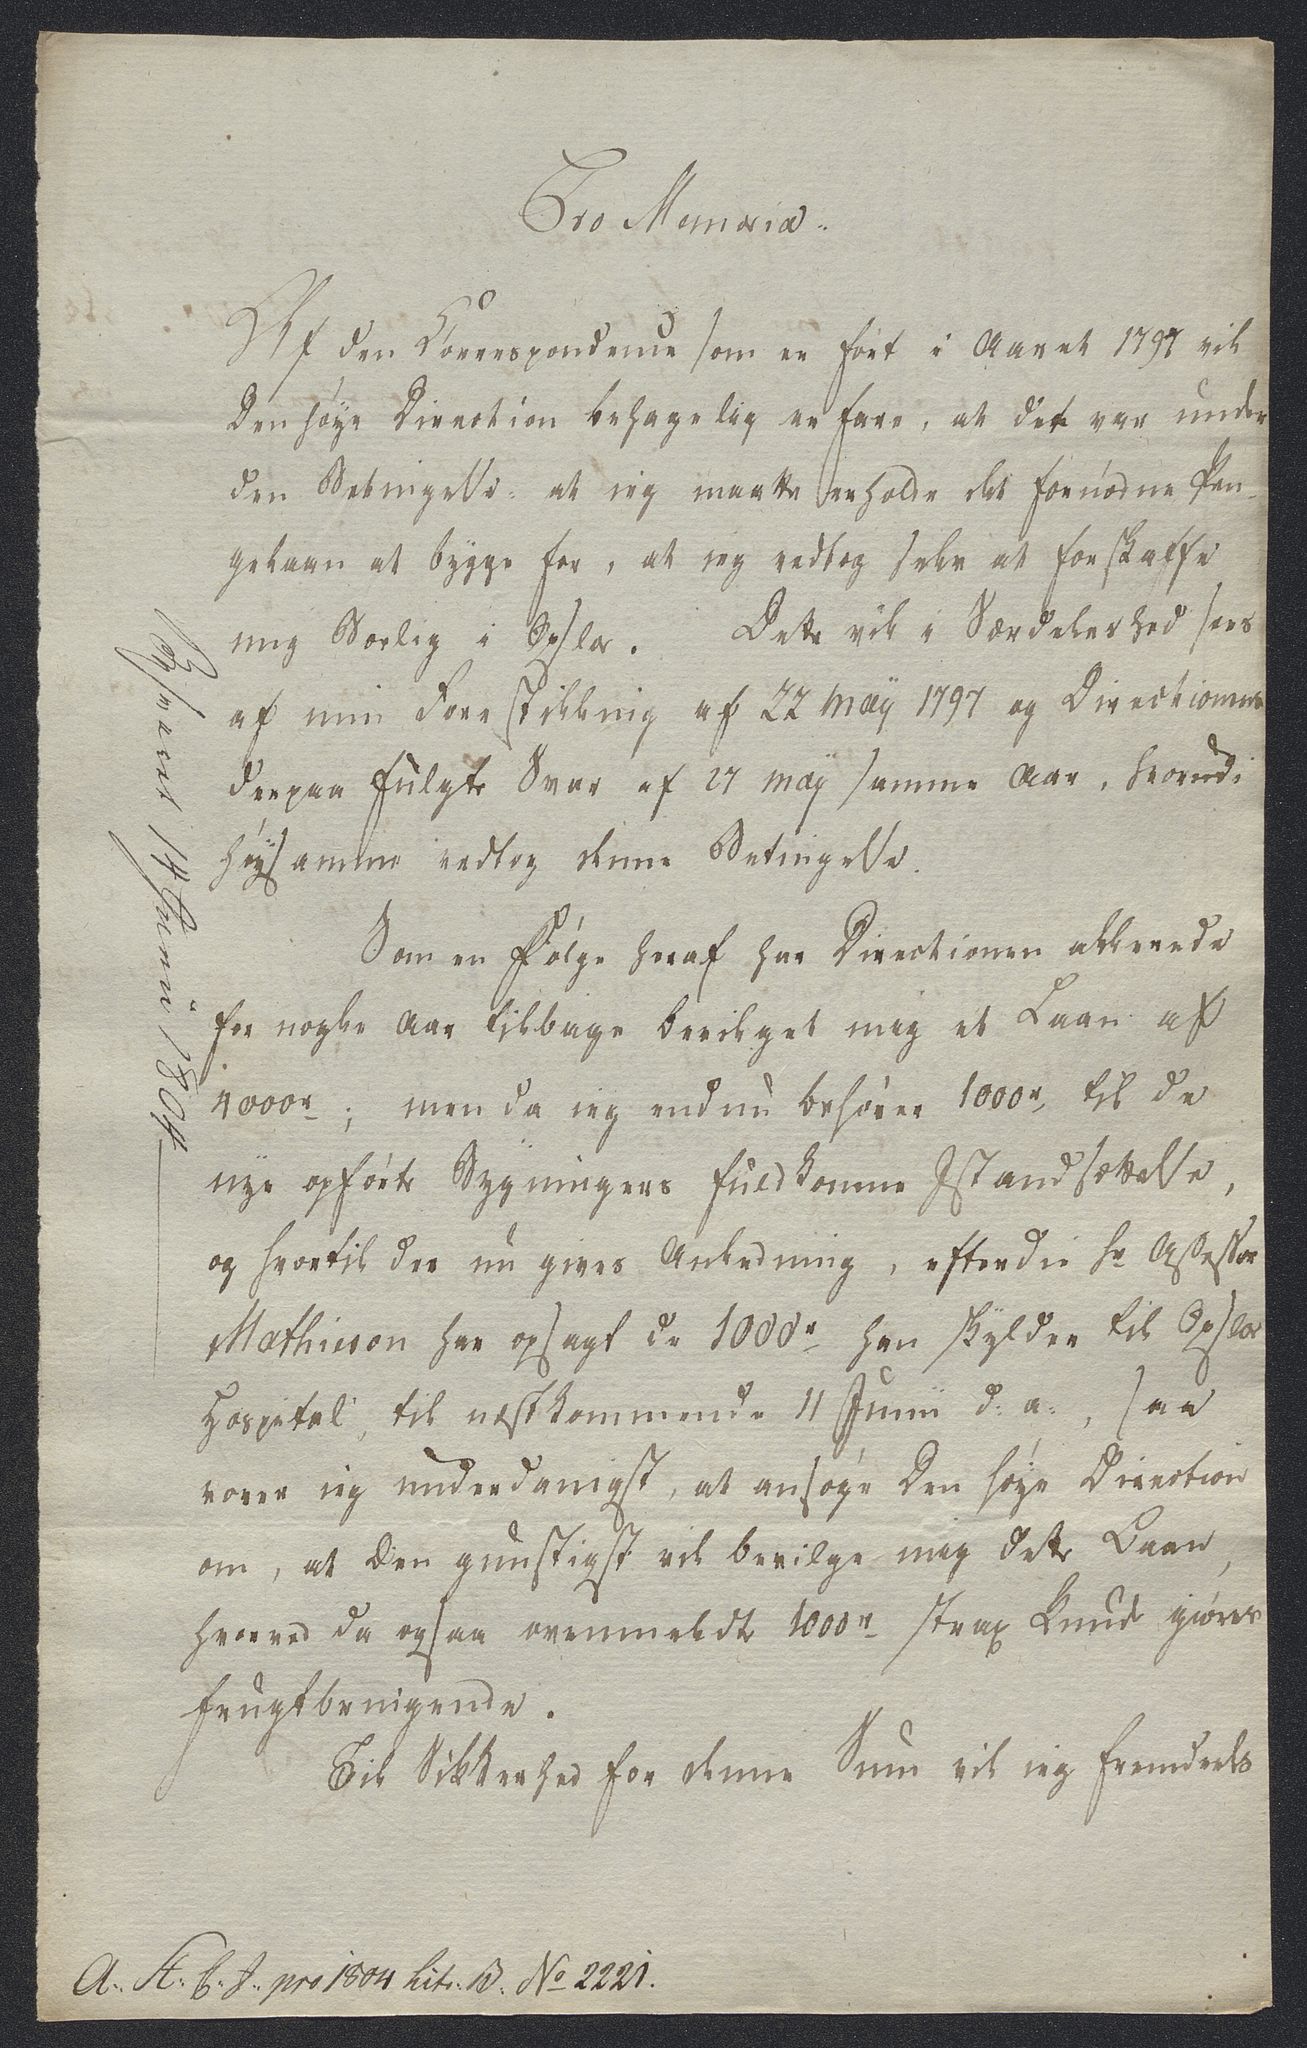 Pro Memoria..
Af den Correspondence som er ført i Aaret 1797 vil
Den høye Direction behagelig erfare, at det var under
den Betingelse: at ieg maatte erholde det fornødne Pen-
gelaan at bygge for, at ieg vedtog selv at forskaffe
mig Boelig i Opsloe. Dette vil i Særdeleshed sees
af min Forestilling af 22 Maÿ 1797 og Directionens
derpaa fulgte Svar af 27 Maÿ samme Aar, hvorudi
Høysamme vedtog denne Betingelse.
Som en Følge heraf har Directionen allerede
for nogle Aar tilbage bevilget mig et Laan af
4000r; men da ieg endnu behøver 1000r, til de
nye opførte Bygningers fuldkomne Istandsættelse,
og hvortil der nu gives Anledning, efterdi Hr Assessor
Mathieson har opsagt de 1000r han skylder til Opsloe
Hospital, til næstkommende 11 Junii d: a:, saa
vover ieg underdanigst, at ansøge Den høye Direction
om, at Den gunstigst vil bevilge mig dette Laan,
hvorved da ogsaa ovenmeldte 1000r strax kunde giøres
frugtbringende.
Til Sikkerhed for denne Sum vil ieg fremdeels
Besvaret 14 Junii 1804
A.. St.. C.. J.. pro 1804 Litr. B. No 2221.